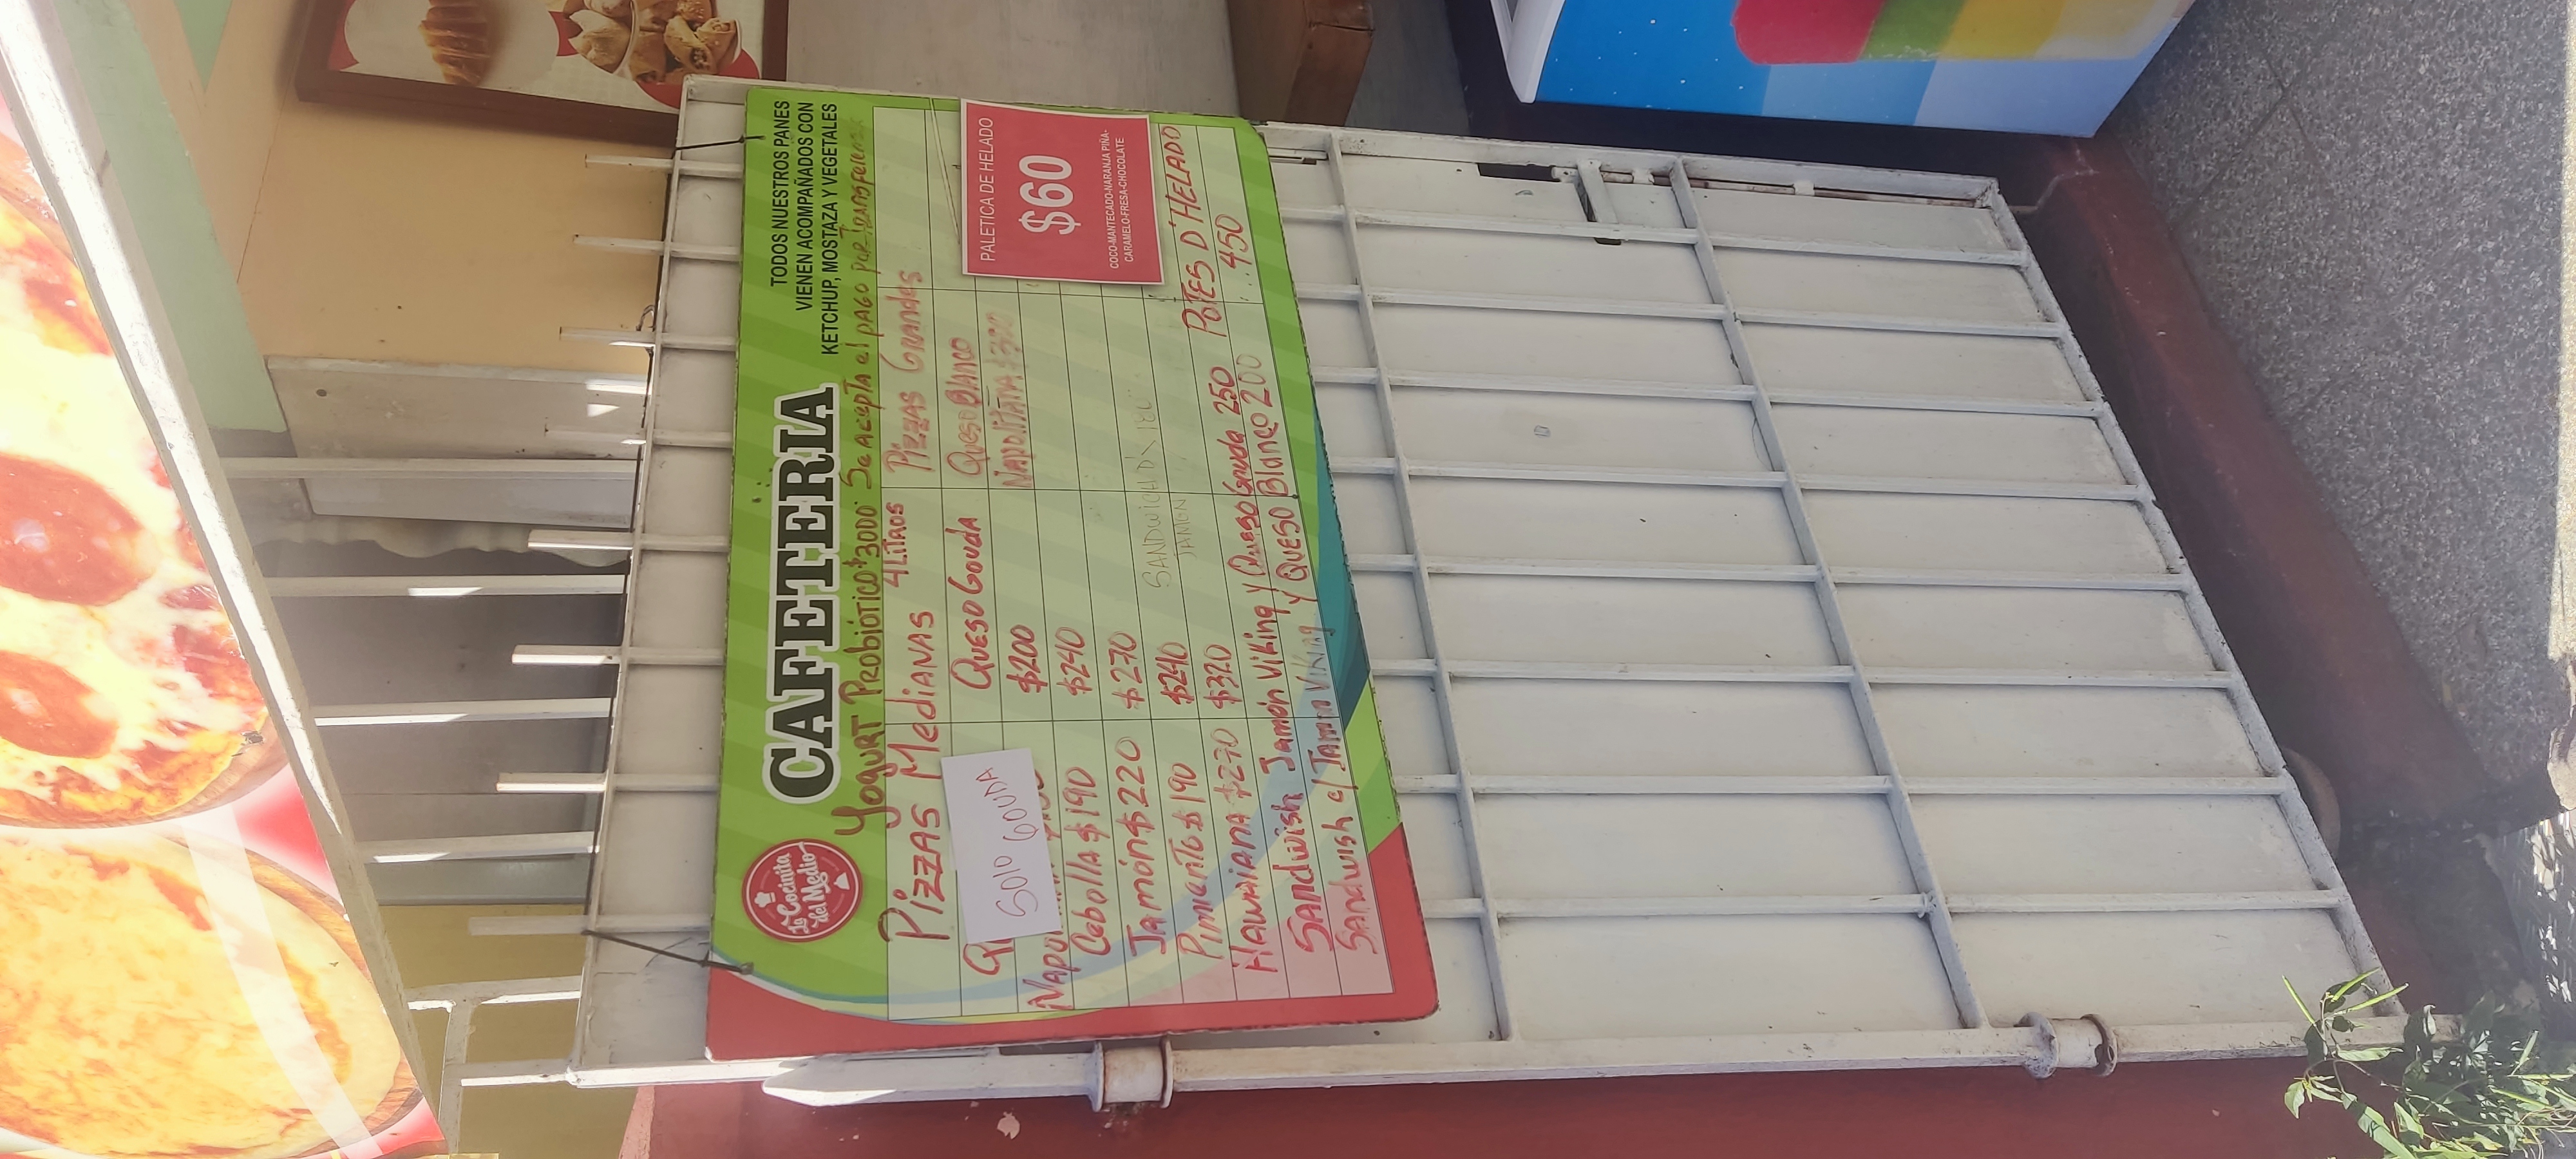 La Cocinita
del Medio
CAFETERIA
TODOS NUESTROS PANES
VIENEN ACOMPAÑADOS CON
KETCHUP, MOSTAZA Y VEGETALES
YOGURT PROBIÓTICO $3000 Se ACEPTA el PAGO por
4 LITROS
PIZZAS MEDIANAS
PIZZAS GRANDES
SOLO GOUDA
QUESO GOUDA
QUESO BLANCO
$200
NAPOLITANA
Cebolla $190 $240
Jamón $220 $270
Pimiento $190 $240
HAWAIANA $270 $320
SANDWICH
JAMON
Sandwish Jamón Viking y Queso Gouda 250
Sandwish c/ Jamon Viking y QUESO Blanco 200
PALETICA DE HELADO
$60
COCO-MANTECADO-NARANJA PIÑA-
CARAMELO-FRESA-CHOCOLATE
POTES D' HELADO
450